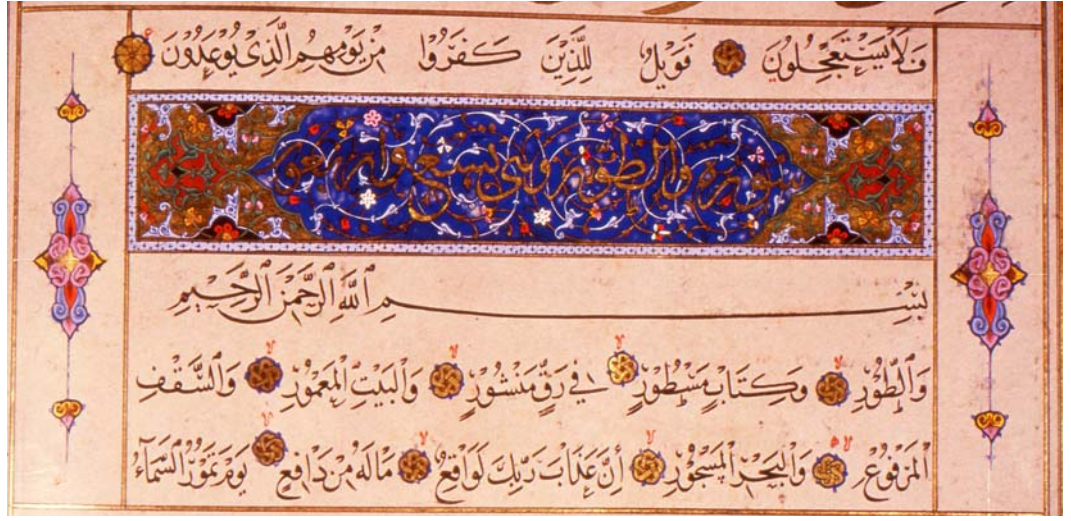 فَلَا يَسْتَعْجِلُونِ فَوَيْلٌ لِلَّذِينَ كَفَرُوا مِنْ يَوْمِهِمُ الَّذِي يُوعَدُونَ
سورة والطور وهى تسع واربعون
بِسْمِ ٱللَّهِ ٱلرَّحْمٰنِ ٱلرَّحِيمِ
وَٱلطُّورِ وَكِتَابٍ مَسْطُورٍ فِي رَقٍّ مَنْشُورٍ وَٱلْبَيْتِ ٱلْمَعْمُورِ وَٱلسَّقْفِ
ٱلْمَرْفُوعِ وَٱلْبَحْرِ ٱلْمَسْجُورِ اِنَّ عَذَابَ رَبِّكَ لَوَاقِعٌ مَالَهُ مِنْ دَافِعٍ يَوْمَ تَمُورُ ٱلسَّمَآءُ